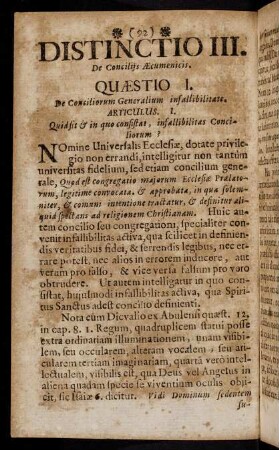 (92)
DISTINCTIO III.
De Concilijs Æcumenicis.
QUÆSTIO I.
De Conciliorum Generalium infallibilitate.
ARTICULUS. I.
Quid sit & in quo consistat, infallibilitas Conci-
liorum?
NOmine Universalis Ecclesiæ, dotatæ privile-
gio non errandi, intelligitur non tantùm
universitas fidelium, sed etiam concilium gene-
rale, Quod est congregatio majorum Ecclesiæ Prælato-
rum, legitimè convocata, & approbata, in qua solem-
niter, & communi intentione tractatur, & definitur ali-
quid spectans ad religionem Christianam. Huic au-
tem concilio seu congregationi, specialiter con-
venit infallibilitas activa, qua scilicet in definien-
dis veritatibus fidei, & ferendis legibus, nec er-
rare potest, nec alios in errorem inducere, aut
verum pro falso, & vice versa falsum pro vero
obtrudere. Ut autem intelligatur in quo con-
sistat, hujusmodi infallibilitas activa, qua Spiri-
tus Sanctus adest concilio definienti.
Nota cum Dicvalio ex Abulensi quæst. 12,
in cap. 8. 1. Regum, quadruplicem statui posse
extra ordinariam illuminationem, unam visibi-
lem, seu occularem, alteram vocalem, seu au-
ricularem tertiam imaginariam, quartā verò intel-
lectualem, visibilis est, qua Deus vel Angelus in
aliena quadam specie se viventium oculis obji-
cit, sic Isaiæ 6. dicitur. Vidi Dominum sedentem
su-